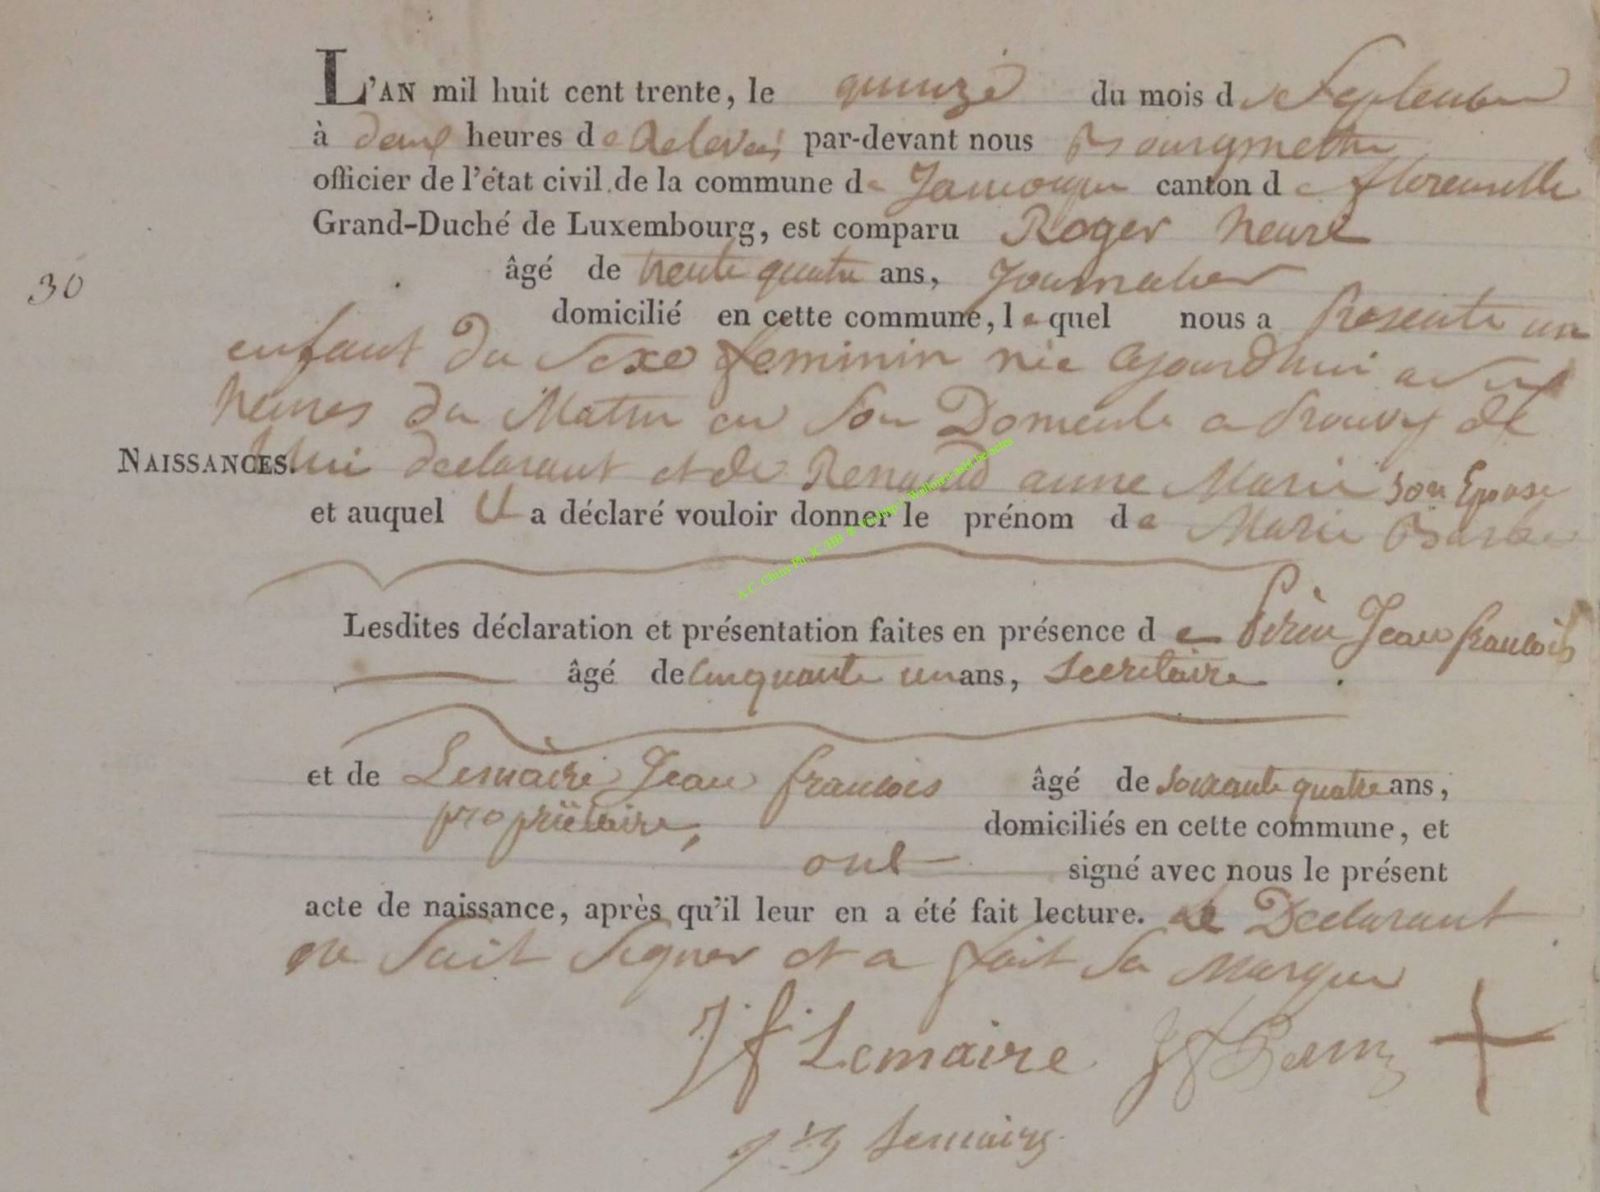 L'AN mil huit cent trente, le quinze du mois de Septembre
à deux heures de Relevés par-devant nous Bourgmettre
officier de l'état civil de la commune de Jamoigne canton de florenville
Grand-Duché de Luxembourg, est comparu Roger henré
30
âgé de trente quatre ans, Journalier
domicilié en cette commune, lequel nous a Presente un
enfant du Sexe feminin née ajourdhui a
heures du Matin en Son Domicile a Prouvy de
NAISSANCES. lui declarant et de Renaud anne Marie son Epouse
et auquel il a déclaré vouloir donner le prénom de Marie Barbe
Lesdites déclaration et présentation faites en présence de Périn Jean francois
âgé de Cinquante un ans, Secretaire
et de Lemaire Jean francois âgé de soixante quatre ans,
propriétaire, domiciliés en cette commune, et
ont signé avec nous le présent
acte de naissance, après qu'il leur en a été fait lecture. Le Declarant
ne Sait Signer et a fait Sa Marque
J f Lemaire J f Perin +
Lemaire